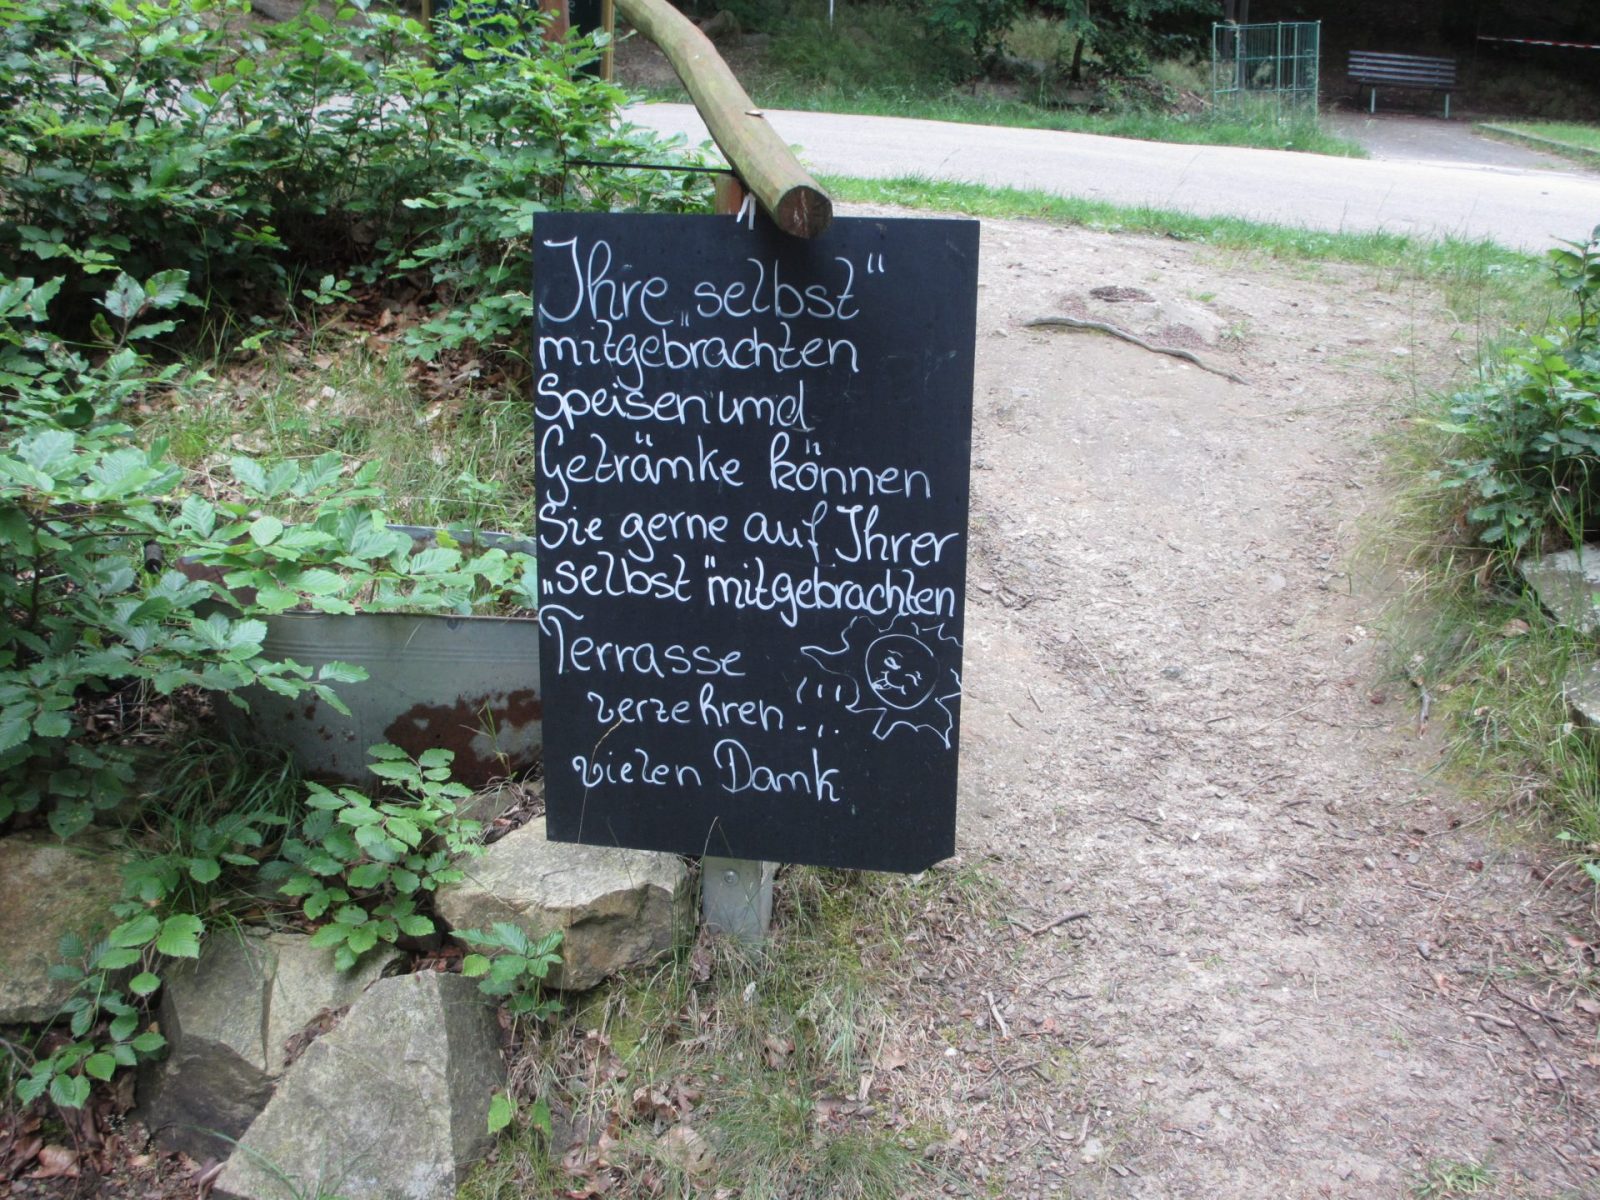 Ihre „selbst“
mitgebrachten
Speisen und
Getränke können
Sie gerne auf Ihrer
„selbst“ mitgebrachten
Terrasse
verzehren...
vielen Dank